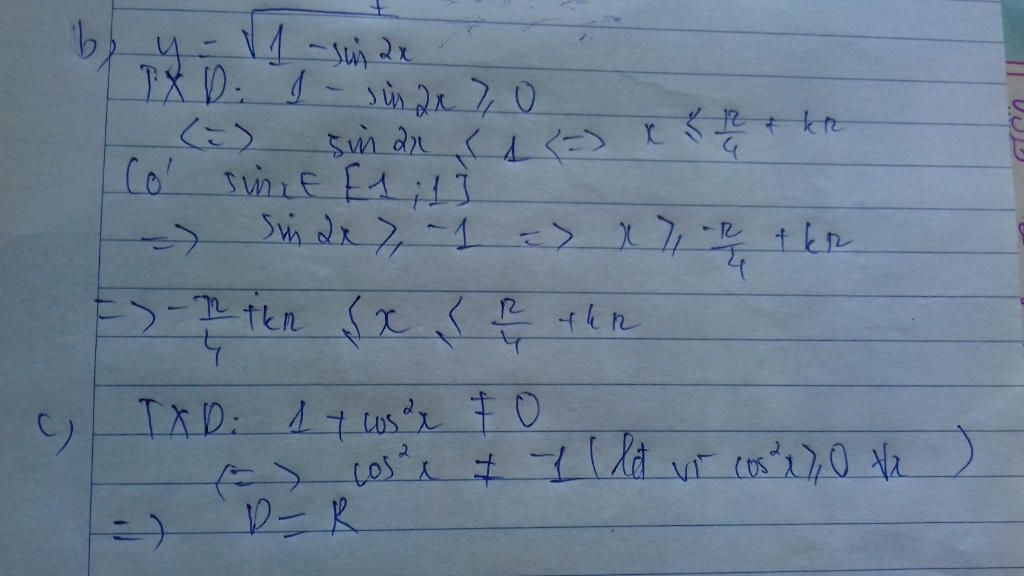 b) y = √1 - sin 2x
TXD: 1 - sin 2x ≥ 0
<=> sin 2x ≤ 1 <=> x ≤ π/4 + kπ
Có sinx ∈ [1 ; 1]
=> sin 2x ≥ -1 => x ≥ -π/4 + kπ
=> -π/4 + kπ ≤ x ≤ π/4 + kπ
c) TXD: 1 + cos²x ≠ 0
<=> cos²x ≠ -1 ( vì cos²x ≥ 0 ∀x )
=> D = R